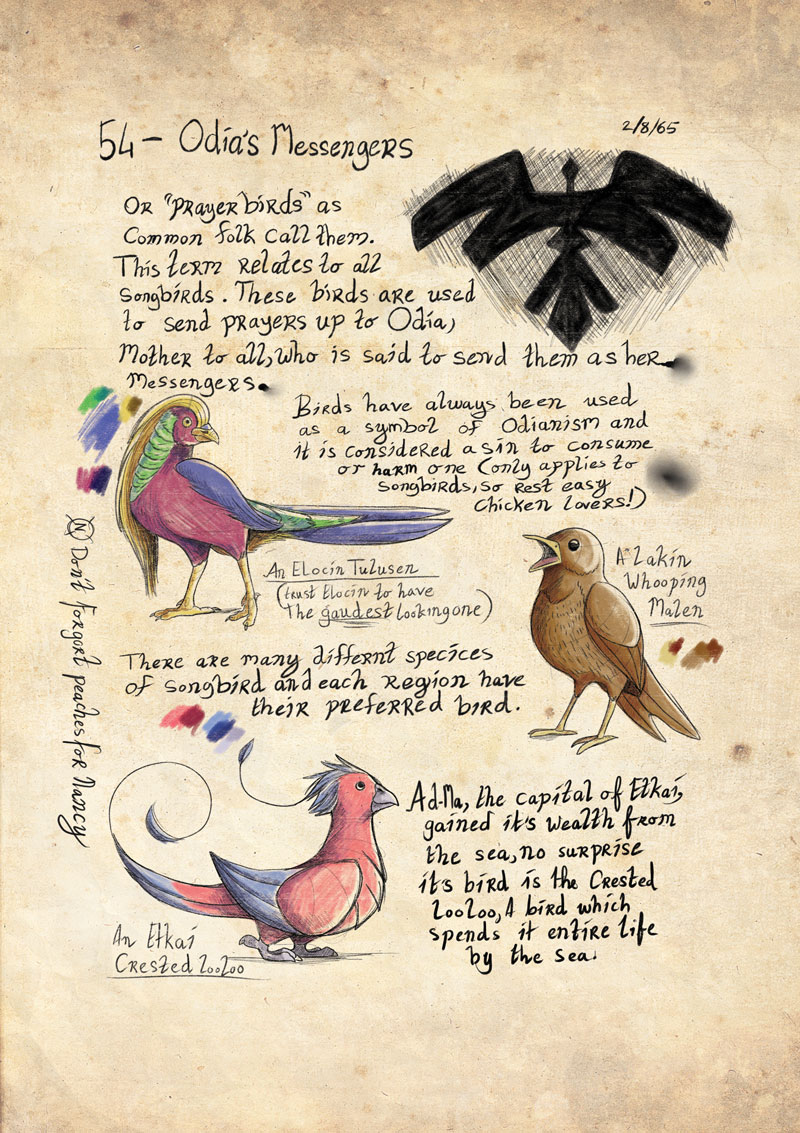 54 - Odia's Messengers
2/8/65
Or "prayer birds" as
Common folk call them.
This term relates to all
songbirds. These birds are used
to send prayers up to Odia,
Mother to all, who is said to send them as her
Messengers.
Birds have always been used
as a symbol of Odianism and
it is considered a sin to consume
or harm one (only applies to
songbirds, so rest easy
chicken lovers!)
An Elocin Tulusen
(trust Elocin to have
The gaudest looking one)
A Lakin
Whooping
Malen
N Don't forgort peaches for Nancy
There are many differnt specices
of songbird and each region have
their preferred bird.
Ad-Ma, the capital of Etkai,
gained it's wealth from
the sea, no surprise
it's bird is the Crested
Zoozoo, A bird which
spends it entire life
by the sea.
An Etkai
Crested Zoozoo